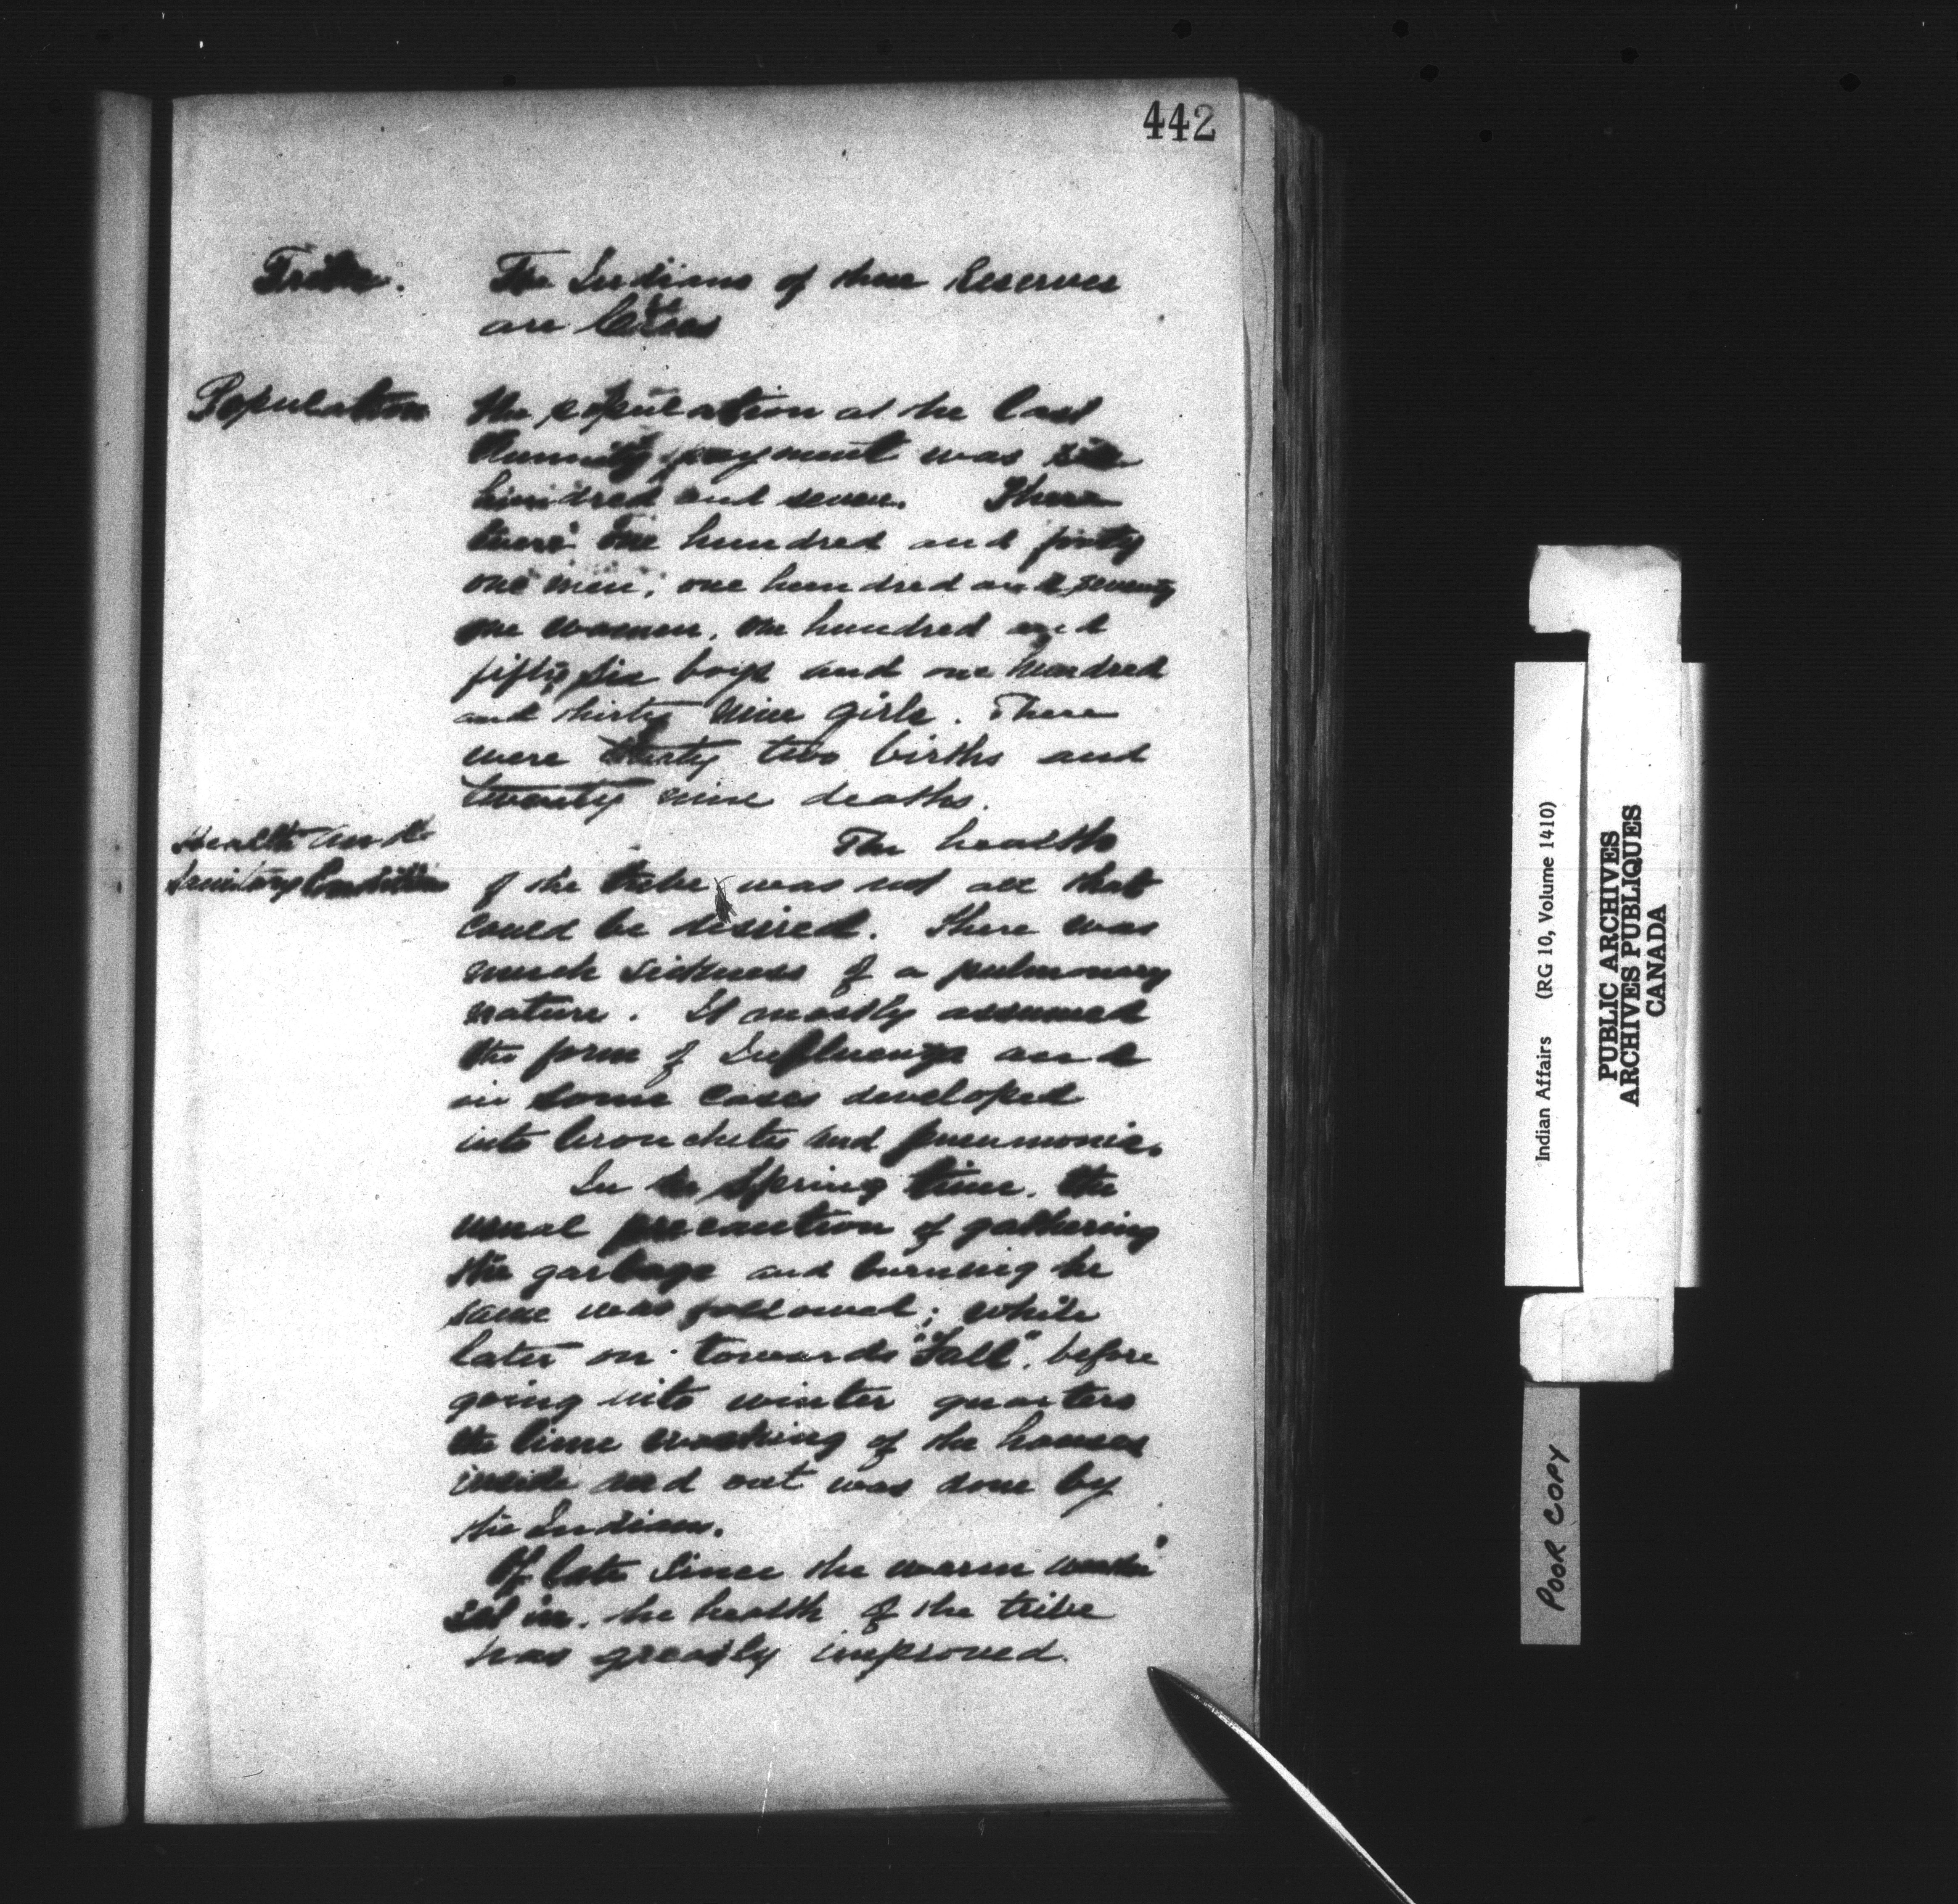 442
Tribe.
The Indians of these Reserves
are Crees
Population
The population at the last
Annuity payment was six
hundred and seven. There
were one hundred and forty
one men, one hundred and seventy
one women, one hundred and
fifty six boys and one hundred
and thirty nine girls. There
were thirty two births and
twenty nine deaths.
Health and
Sanitary Condition
The health
of the tribe was not all that
could be desired. There was
much sickness of a pulmonary
nature. It mostly assumed
the form of Influenza and
in some cases developed
into bronchitis and pneumonia.
In the Spring time, the
usual precaution of gathering
the garbage and burning the
same was followed; while
later on towards "Fall", before
going into winter quarters
the lime washing of the houses
inside and out was done by
the Indians.
Of late since the warm weather
set in, the health of the tribe
has greatly improved.
Indian Affairs (RG 10, Volume 1410)
PUBLIC ARCHIVES
ARCHIVES PUBLIQUES
CANADA
POOR COPY